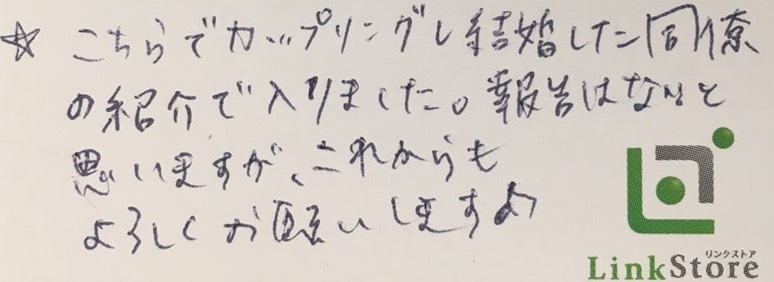 ☆ こちらでカップリングし結婚した同僚
の紹介で入りました。報告はないと
思いますが、これからも
よろしくお願いします
リンクストア
LinkStore